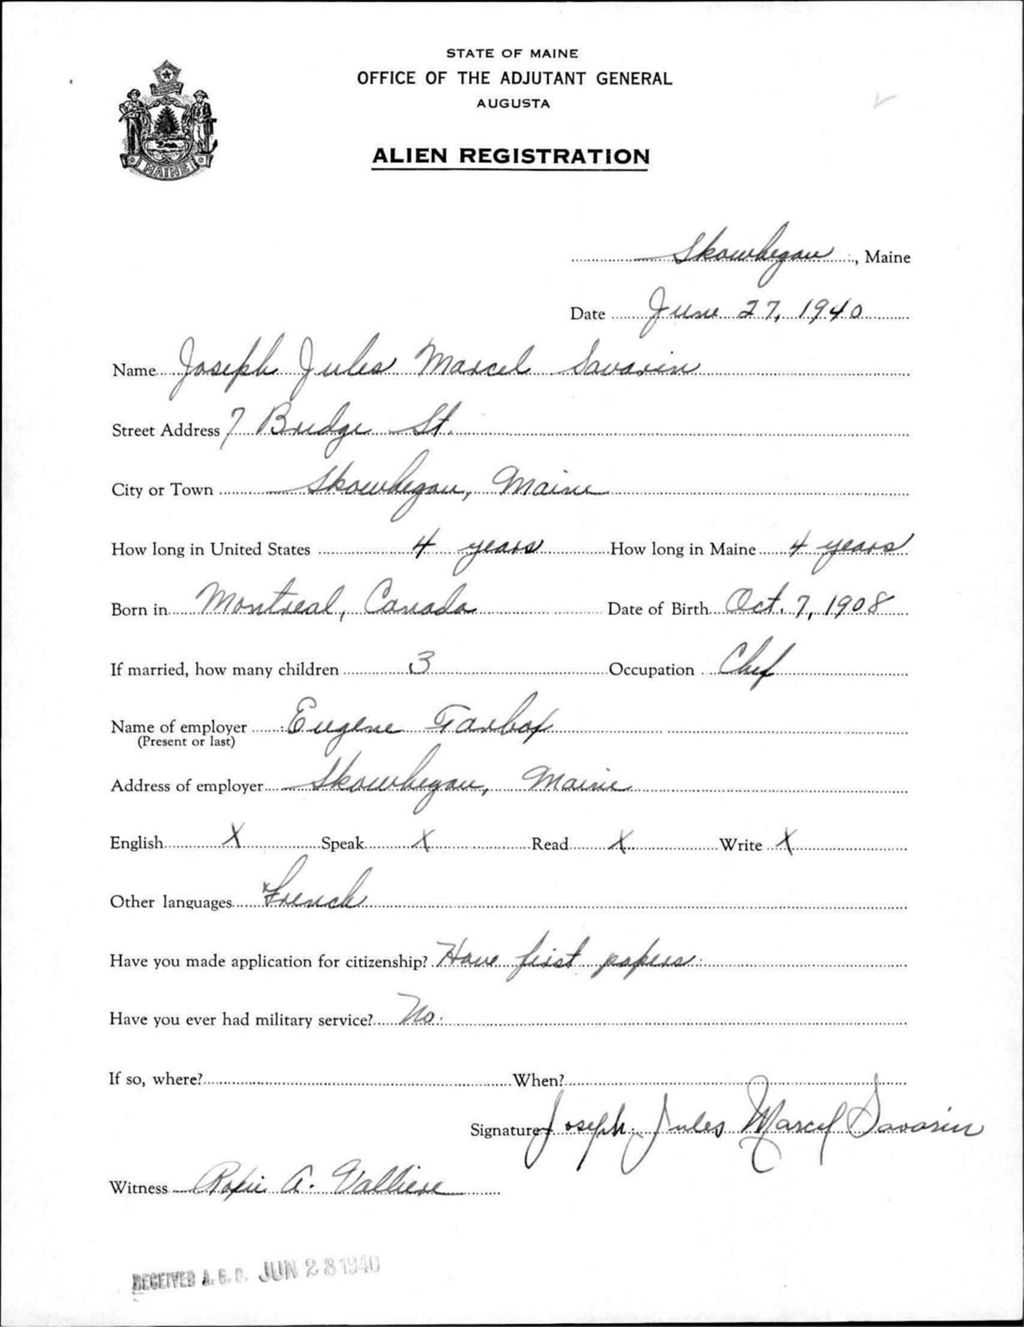 STATE OF MAINE
OFFICE OF THE ADJUTANT GENERAL
AUGUSTA
ALIEN REGISTRATION
MAINE
Skowhegan, Maine
Date June 27, 1940
Name Joseph Jules Marcel Savarin
Street Address 7 Bridge St.
City or Town Skowhegan, Maine
How long in United States 4 years How long in Maine 4 years
Born in Montreal, Canada Date of Birth Oct. 7, 1908
If married, how many children 3 Occupation Chef
Name of employer Eugene Tarbox
(Present or last)
Address of employer Skowhegan, Maine
English X Speak X Read X Write X
Other languages French
Have you made application for citizenship? Have first papers.
Have you ever had military service? No.
If so, where? When?
Signature Joseph Jules Marcel Savarin
Witness A. Valliere
RECEIVED A. G. O. JUN 28 1940